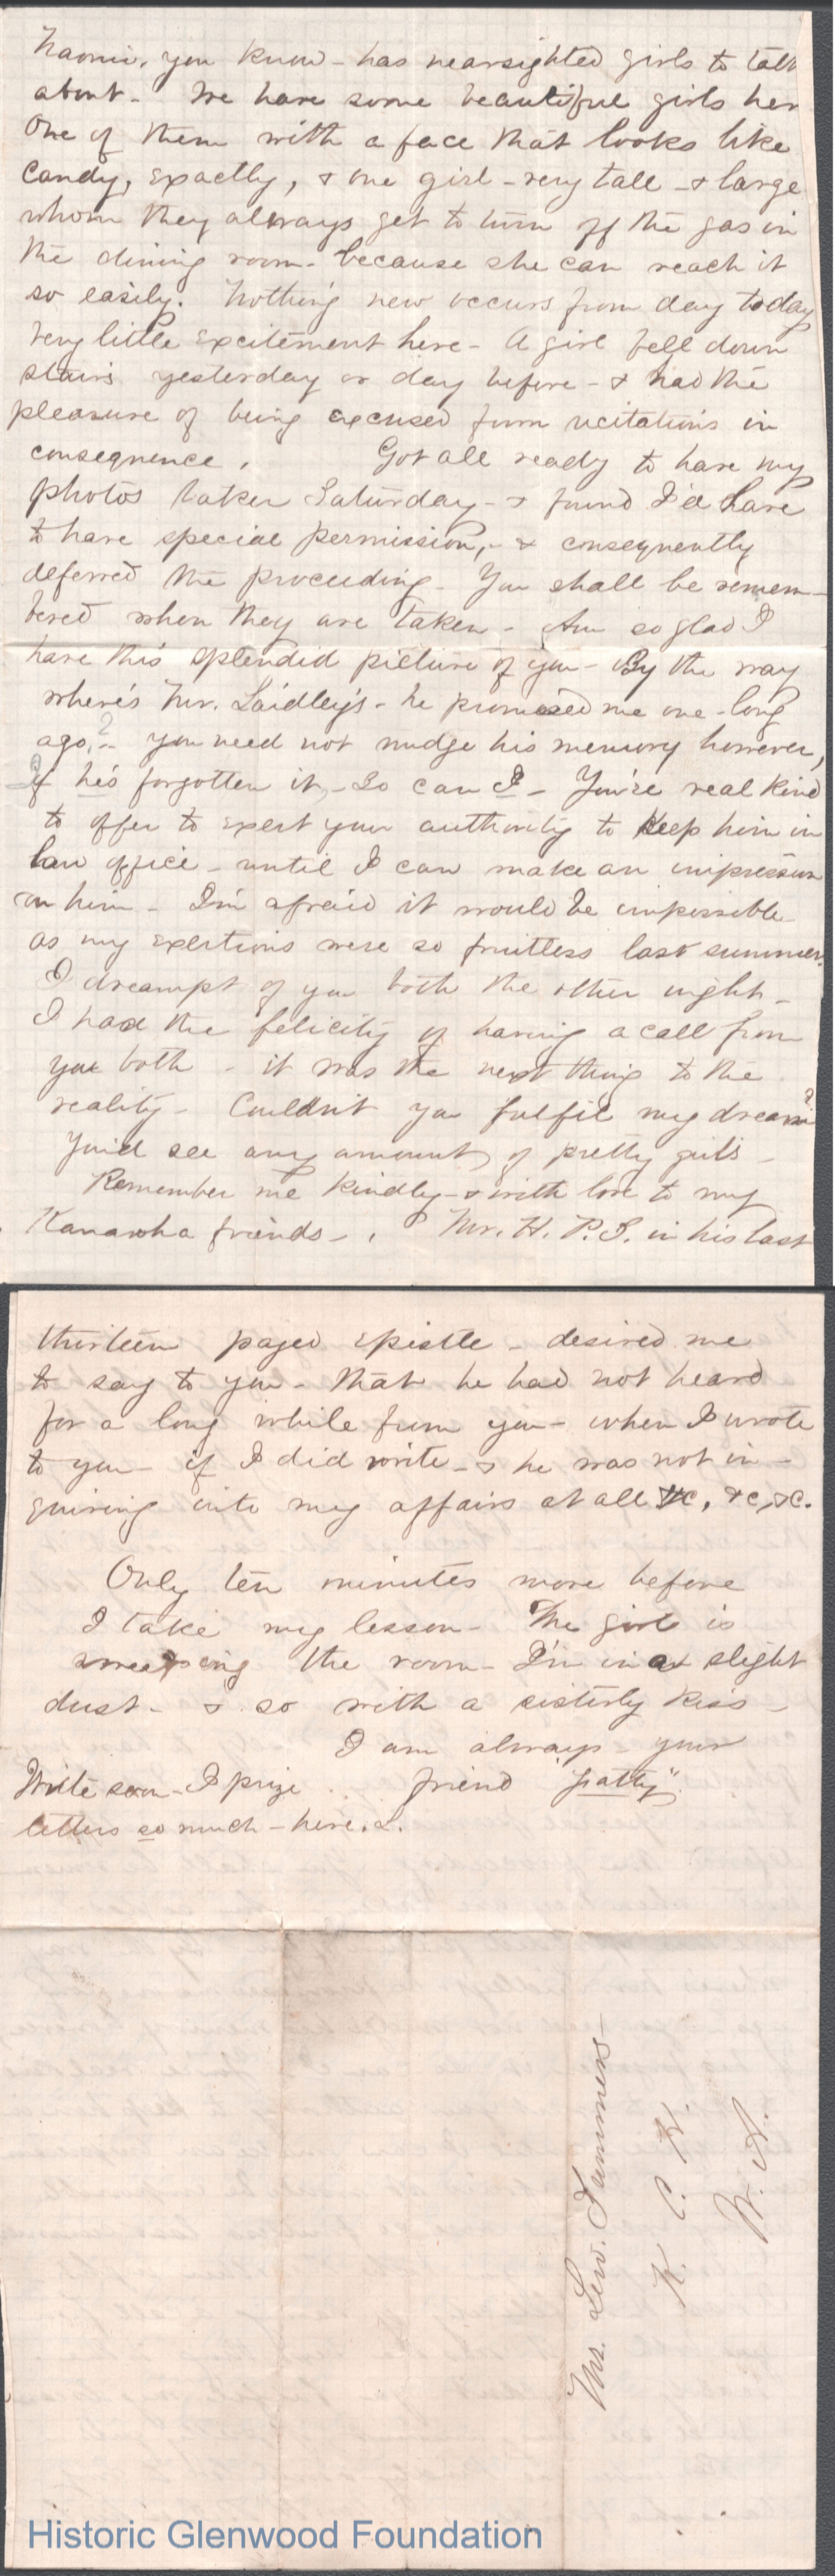 Naomi, you know - has nearsighted girls to talk
about - We have some beautiful girls her
One of them with a face that looks like
candy, exactly, & one girl - very tall - & large
whom they always get to turn off the gas in
the dining room - because she can reach it
so easily. Nothing new occurs from day to day
very little excitement here - A girl fell down
stairs yesterday or day before - & had the
pleasure of being excused from recitations in
consequence. Got all ready to have my
photos taken Saturday - & found I'd have
to have special permission, - & consequently
deferred the proceeding - You shall be remem-
bered when they are taken - Am so glad I
have this splendid picture of you - By the way
where's Mr. Laidley's - he promised me one - long
ago, -? you need not nudge his memory however,
if he's forgotten it, - so can I - You're real kind
to offer to exert your authority to keep him in
law office - until I can make an impression
on him - I'm afraid it would be impossible
as my exertions were so fruitless last summer.
I dreampt of you both the other night -
I had the felicity of having a call from
you both - it was the next thing to the
reality - Couldn't you fulfil my dream?
You'd see any amount of pretty girls -
Remember me kindly - & with love to my
Kanawha friends - . Mr. H. P. S. in his last
thirteen paged epistle - desired me
to say to you - that he had not heard
for a long while from you - when I wrote
to you - if I did write - & he was not in-
quiring into my affairs at all &c, &c, &c.
Only ten minutes more before
I take my lesson - The girl is
sweeping the room - I'm in a slight
dust - & so with a sisterly kiss -
I am always - your
Write soon - I prize friend "Patty"
letters so much - here. L.
Mr. Lew. Summers -
K. C. H.
W. A.
Historic Glenwood Foundation